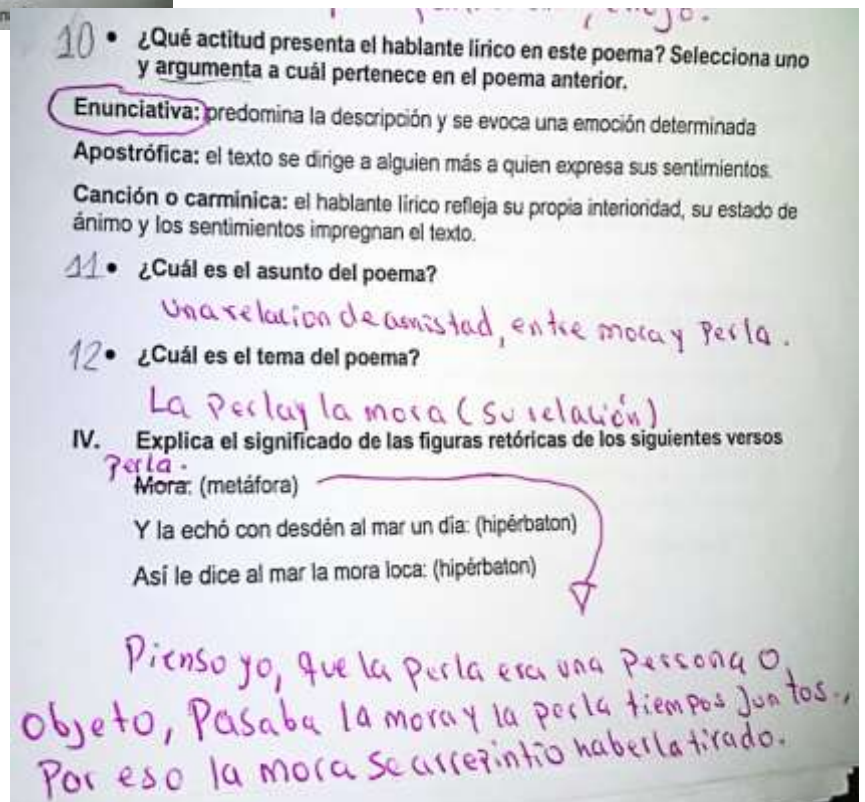 10 • ¿Qué actitud presenta el hablante lírico en este poema? Selecciona uno
y argumenta a cuál pertenece en el poema anterior.
Enunciativa: predomina la descripción y se evoca una emoción determinada
Apostrófica: el texto se dirige a alguien más a quien expresa sus sentimientos.
Canción o carmínica: el hablante lírico refleja su propia interioridad, su estado de
ánimo y los sentimientos impregnan el texto.
11 • ¿Cuál es el asunto del poema?
Una relacion de amistad, entre mora y Perla.
12 • ¿Cuál es el tema del poema?
La Perla y la mora (su relación)
IV. Explica el significado de las figuras retóricas de los siguientes versos
Perla.
Mora: (metáfora)
Y la echó con desdén al mar un día: (hipérbaton)
Así le dice al mar la mora loca: (hipérbaton)
Pienso yo, que la perla era una persona o
objeto, Pasaba la mora y la perla tiempos juntos.,
Por eso la mora se arrepintio haberla tirado.